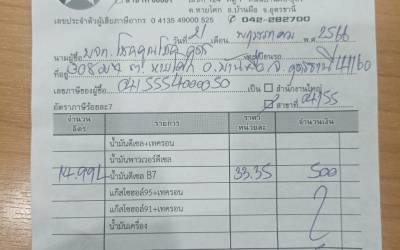 ต.หายโศก อ.บ้านผือ จ.อุดรธานี
เลขประจำตัวผู้เสียภาษีอากร 0 4135 49000 525 042-282700
วันที่ 21 เดือน พฤษภาคม พ.ศ. 2566
นามผู้ซื้อ
ที่อยู่ 308 ม. 3 ต.หายโศก อ.บ้านผือ จ.อุดรธานี 41160
เลขประจำตัวผู้เสียภาษีของผู้ซื้อ เป็น สำนักงานใหญ่
อัตราภาษีร้อยละ7 สาขาที่
จำนวน ลิตร รายการ ราคา หน่วยละ จำนวนเงิน
น้ำมันดีเซล+เทครอน
น้ำมันพาวเวอร์ดีเซล
14.992 น้ำมันดีเซล B7 33.35 500
แก๊สโซฮอล์95+เทครอน
แก๊สโซฮอล์91+เทครอน
น้ำมันเครื่อง